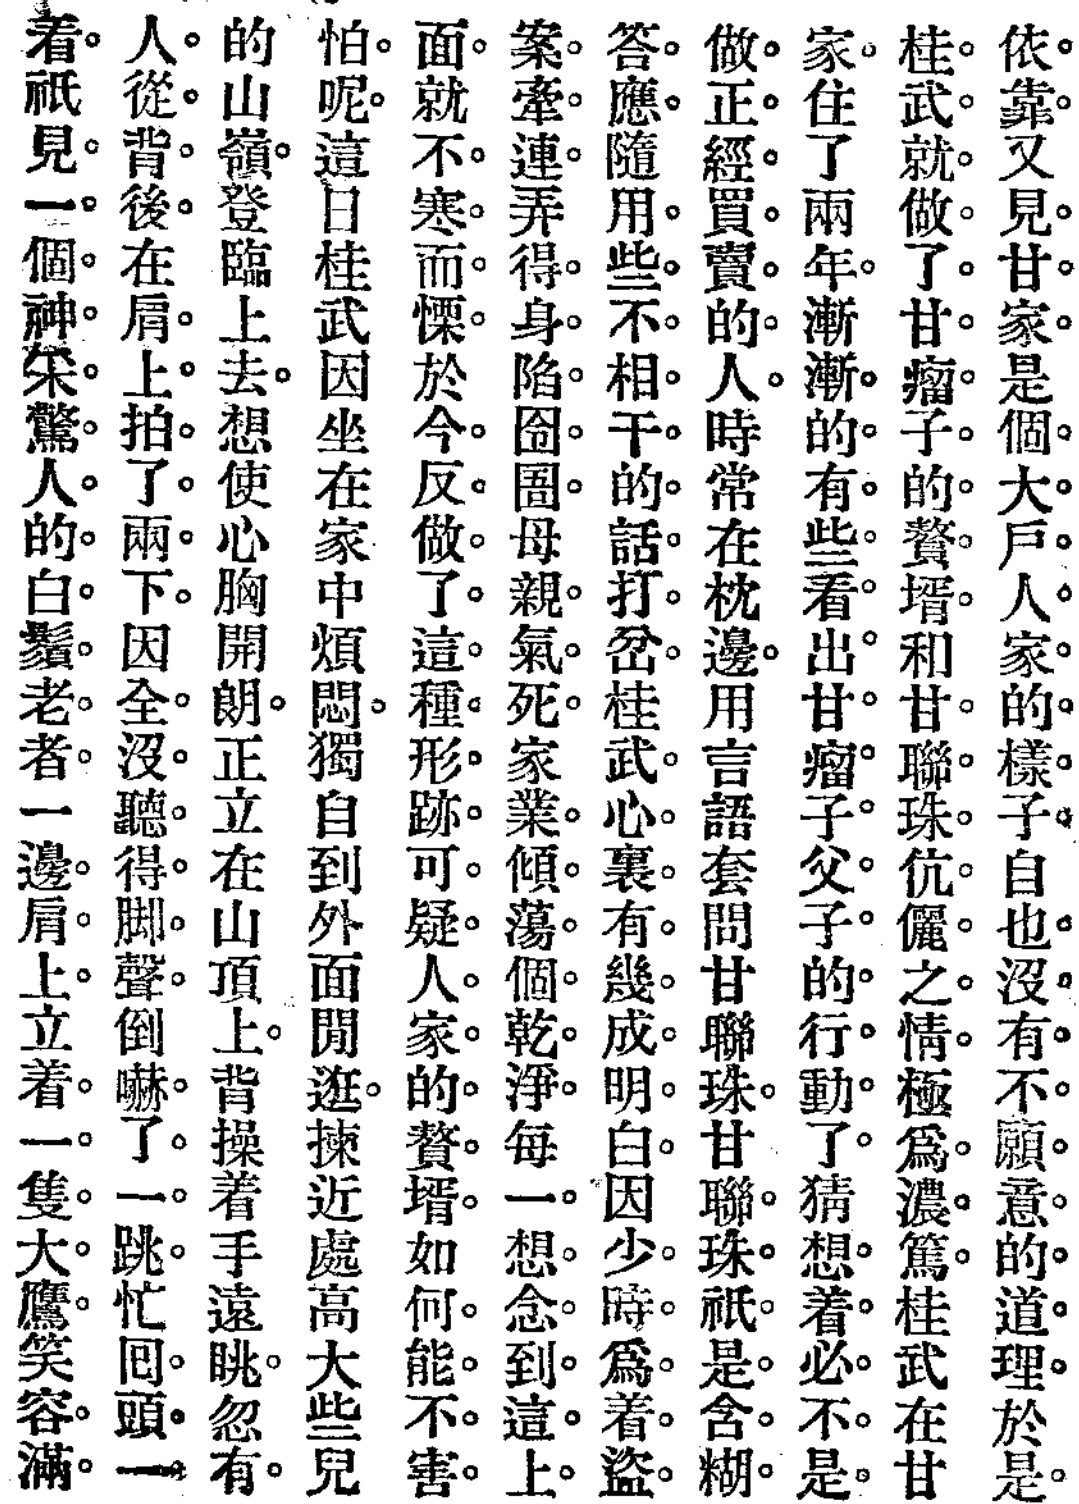 依靠又見甘家是個大戶人家的樣子自也沒有不願意的道理於是
桂武就做了甘瘤子的贅壻和甘聯珠伉儷之情極爲濃篤桂武在甘
家住了兩年漸漸的有些看出甘瘤子父子的行動了猜想着必不是
做正經買賣的人時常在枕邊用言語套問甘聯珠甘聯珠祇是含糊
答應隨用些不相干的話打岔桂武心裏有幾成明白因少時爲着盜
案牽連弄得身陷囹圄母親氣死家業傾蕩個乾淨每一想念到這上
面就不寒而慄於今反做了這種形跡可疑人家的贅壻如何能不害
怕呢這日桂武因坐在家中煩悶獨自到外面閒逛揀近處高大些兒
的山嶺登臨上去想使心胸開朗正立在山頂上背操着手遠眺忽有
人從背後在肩上拍了兩下因全沒聽得脚聲倒嚇了一跳忙囘頭一
看祇見一個神采驚人的白鬚老者一邊肩上立着一隻大鷹笑容滿